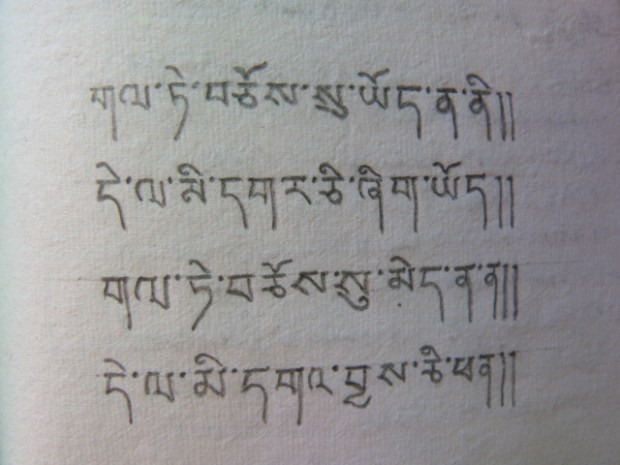 གལ་ཏེ་བཅོས་སུ་ཡོད་ན་ནི།།
དེ་ལ་མི་དགར་ཅི་ཞིག་ཡོད།།
གལ་ཏེ་བཅོས་སུ་མེད་ན་ན།།
དེ་ལ་མི་དགའ་བྱས་ཅི་ཕན།།